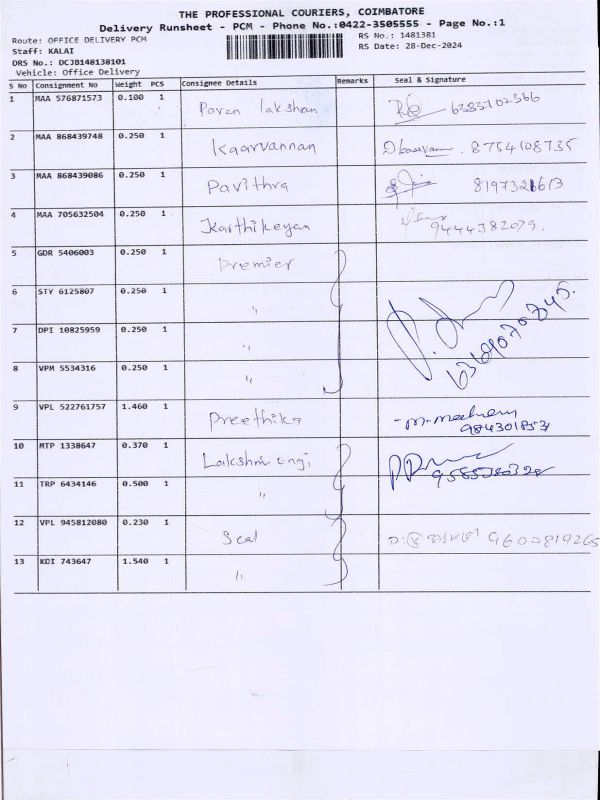 THE PROFESSIONAL COURIERS, COIMBATORE
Delivery Runsheet - PCM - Phone No.:0422-3505555 - Page No.:1
Route: OFFICE DELIVERY PCM RS No.: 1481381
Staff: KALAI RS Date: 28-Dec-2024
DRS No.: DCJB148138101
Vehicle: Office Delivery
S No Consignment No Weight PCS Consignee Details Remarks Seal & Signature
1 MAA 576871573 0.100 1 Poven lakshan 6383702366
2 MAA 868439748 0.250 1 Kaarvannan 8754108735
3 MAA 868439086 0.250 1 Pavithra
4 MAA 705632504 0.250 1 Karthikeyan 9444382079.
5 GDR 5406003 0.250 1 Premier
6 STY 6125807 0.250 1 "
7 DPI 10825959 0.250 1 "
8 VPM 5534316 0.250 1 "
9 VPL 522761757 1.460 1 Preethika
984301853
10 MTP 1338647 0.370 1 Lakshmi Engi
11 TRP 6434146 0.500 1 "
12 VPL 945812080 0.230 1 Seal 9600819265
13 KDI 743647 1.540 1 "